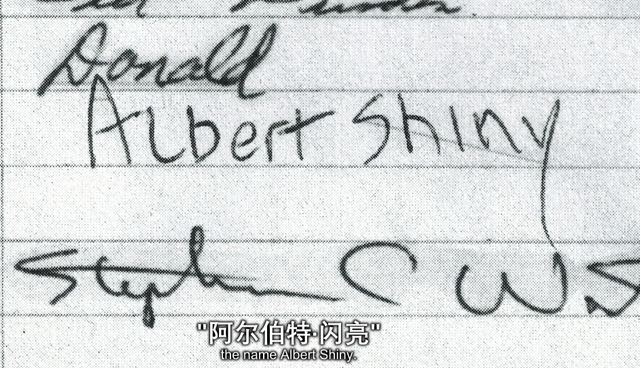 Donald
Albert Shiny
Stephen C
"阿尔伯特·闪亮"
the name Albert Shiny.